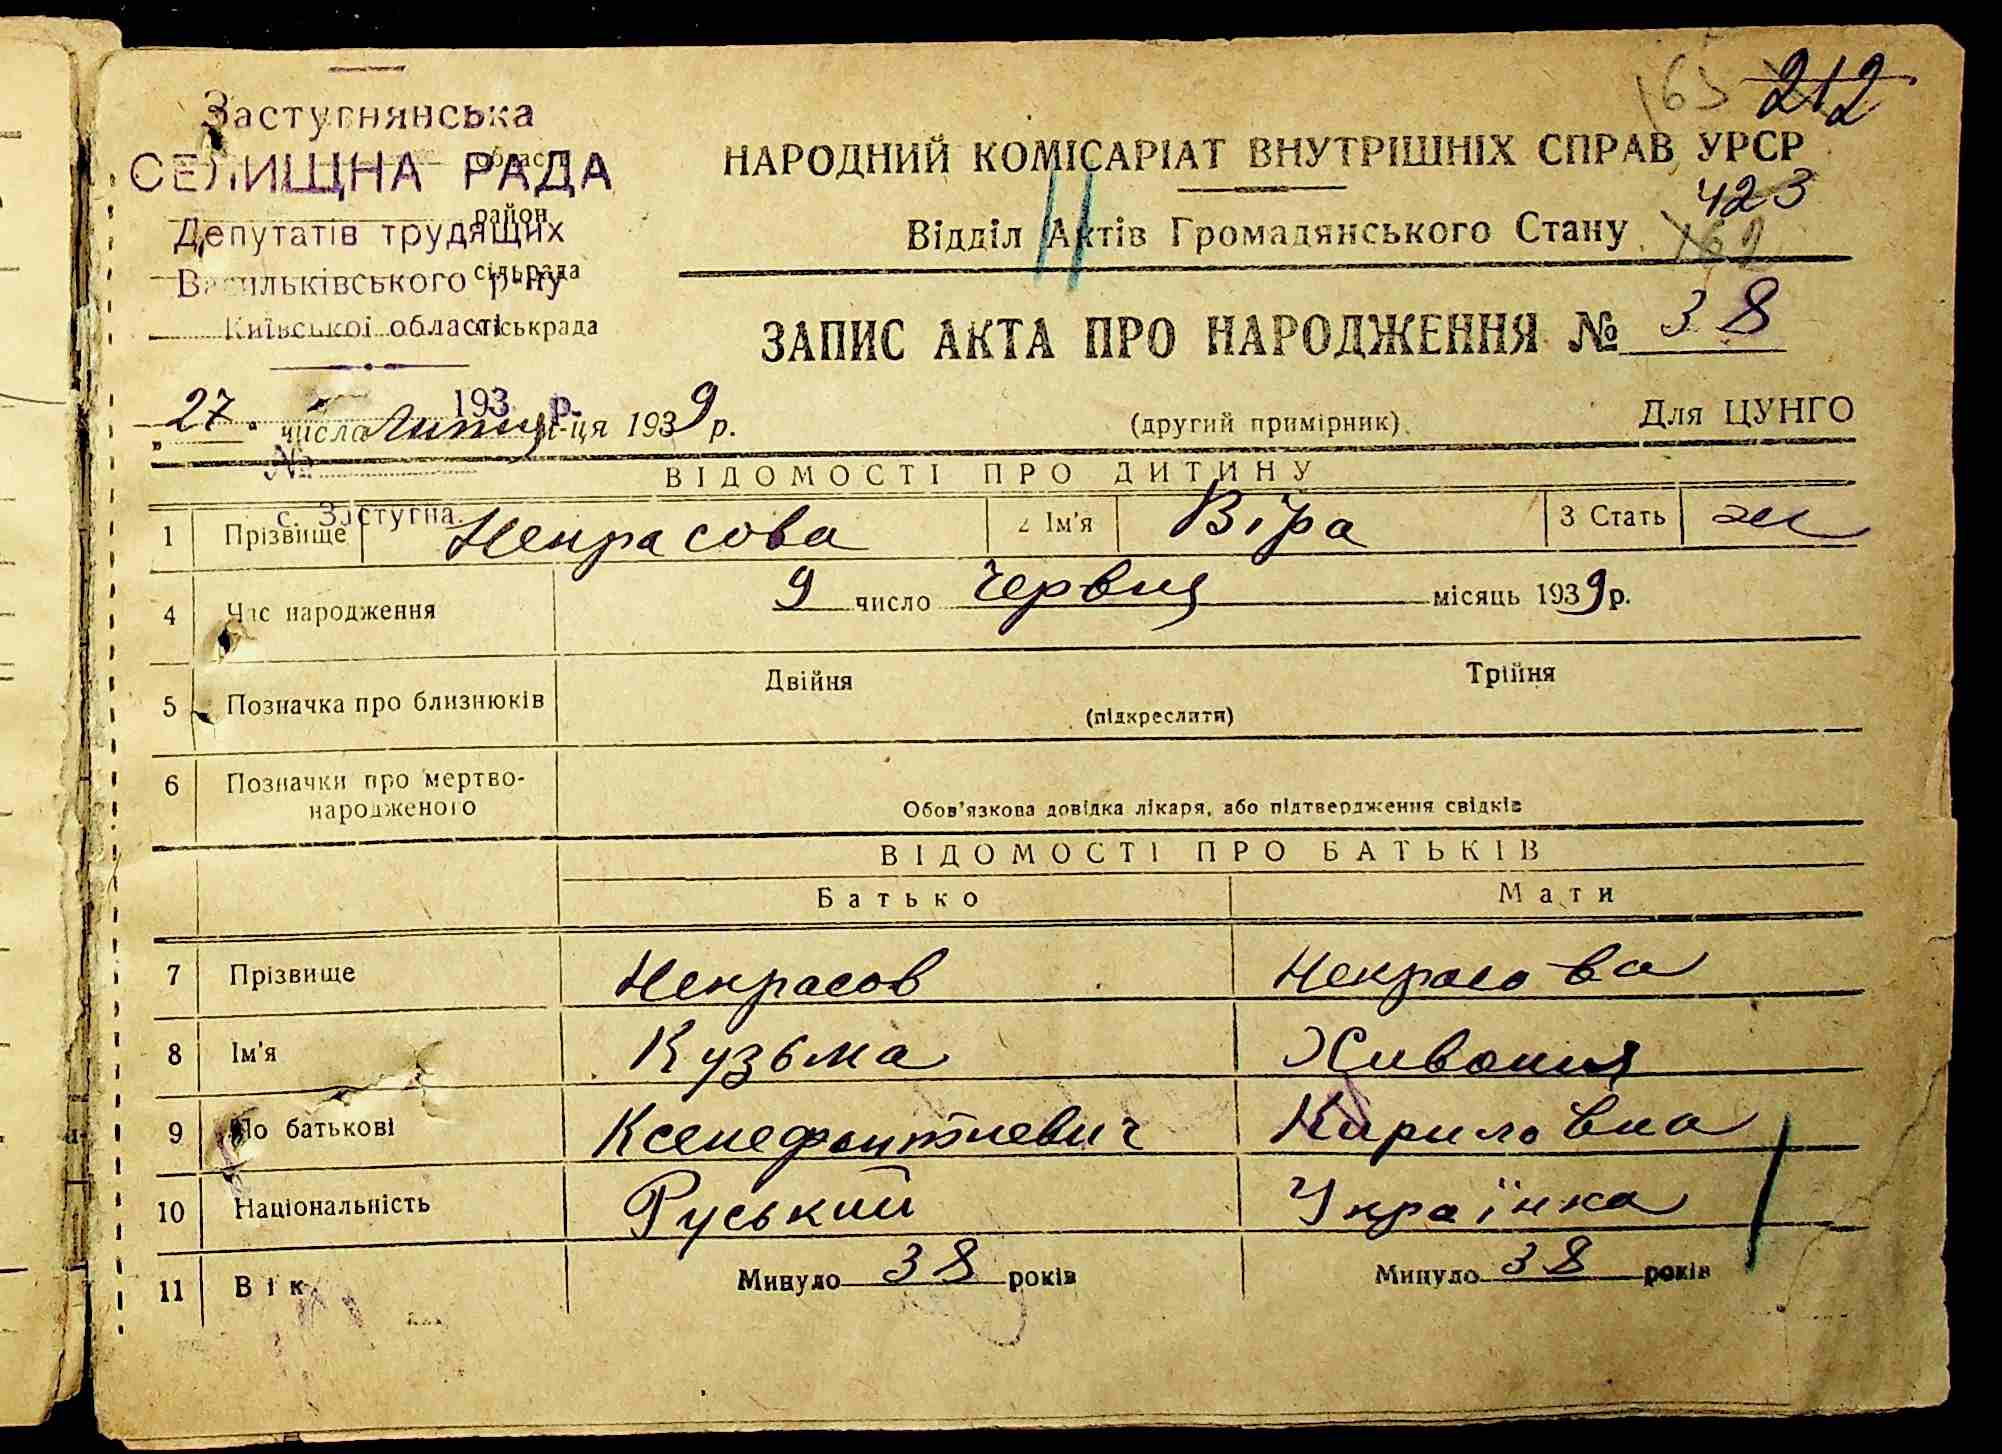 165 212
Застугнянська
СЕЛИЩНА РАДА
область
район
Депутатів трудящих
сільрада
Васильківського р-ну
Київської області
міськрада
193 р.
№
с. Застугна
НАРОДНИЙ КОМІСАРІАТ ВНУТРІШНІХ СПРАВ УРСР
423
Відділ Актів Громадянського Стану
162
ЗАПИС АКТА ПРО НАРОДЖЕННЯ № 38
„27" числа липня м-ця 1939 р.
(другий примірник)
Для ЦУНГО
ВІДОМОСТІ ПРО ДИТИНУ
1 Прізвище Некрасова 2 Ім'я Віра 3 Стать ж
4 Час народження 9 число Червня місяць 1939 р.
5 Позначка про близнюків Двійня Трійня
(підкреслити)
6 Позначки про мертво-
народженого
Обов'язкова довідка лікаря, або підтвердження свідків
ВІДОМОСТІ ПРО БАТЬКІВ
Батько Мати
7 Прізвище Некрасов Некрасова
8 Ім'я Кузьма Хивония
9 По батькові Ксенефонтиевич Кириловна
10 Національність Руський Українка
11 Вік Минуло 38 років Минуло 38 років